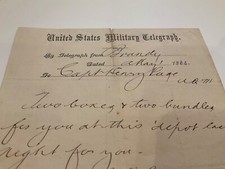 United States Military Telegraph.
By Telegraph from Brandy
Dated May 1 186
To Capt Henry Page
A.Q.M.
Two boxes & two bundles
for you at this depot
right for you.